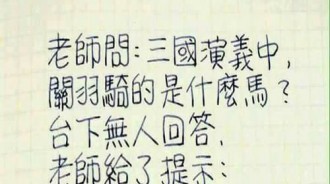 老師問:三國演義中,
關羽騎的是什麼馬?
台下無人回答,
老師給了提示: